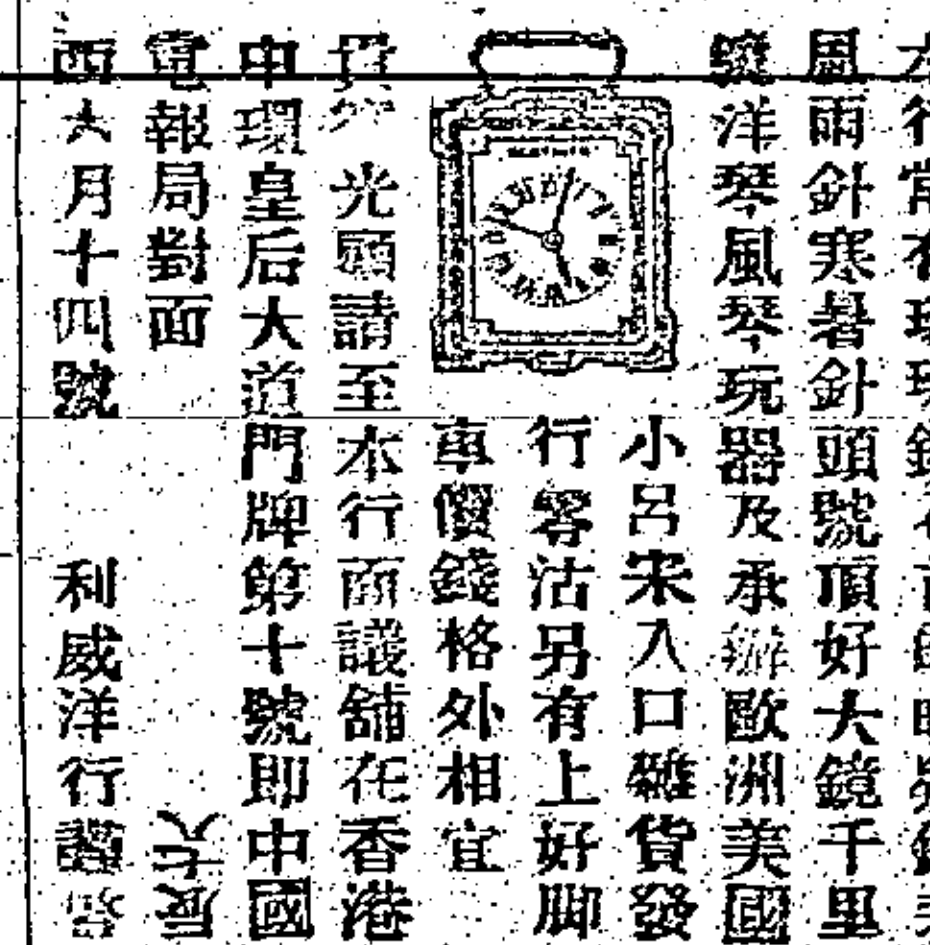 行常有
風雨針寒暑針頭號頂好大鏡千里
鏡洋琴風琴玩器及承辦歐洲美國
小呂宋入口雜貨發
行零沽另有上好脚
車價錢格外相宜
貴客光顧請至本行面議舖在香港
中環皇后大道門牌第十號即中國
電報局對面
西六月十四號 利威洋行謹啓